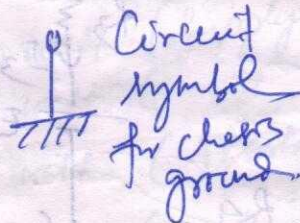 Circuit
symbol
for chasis
ground.